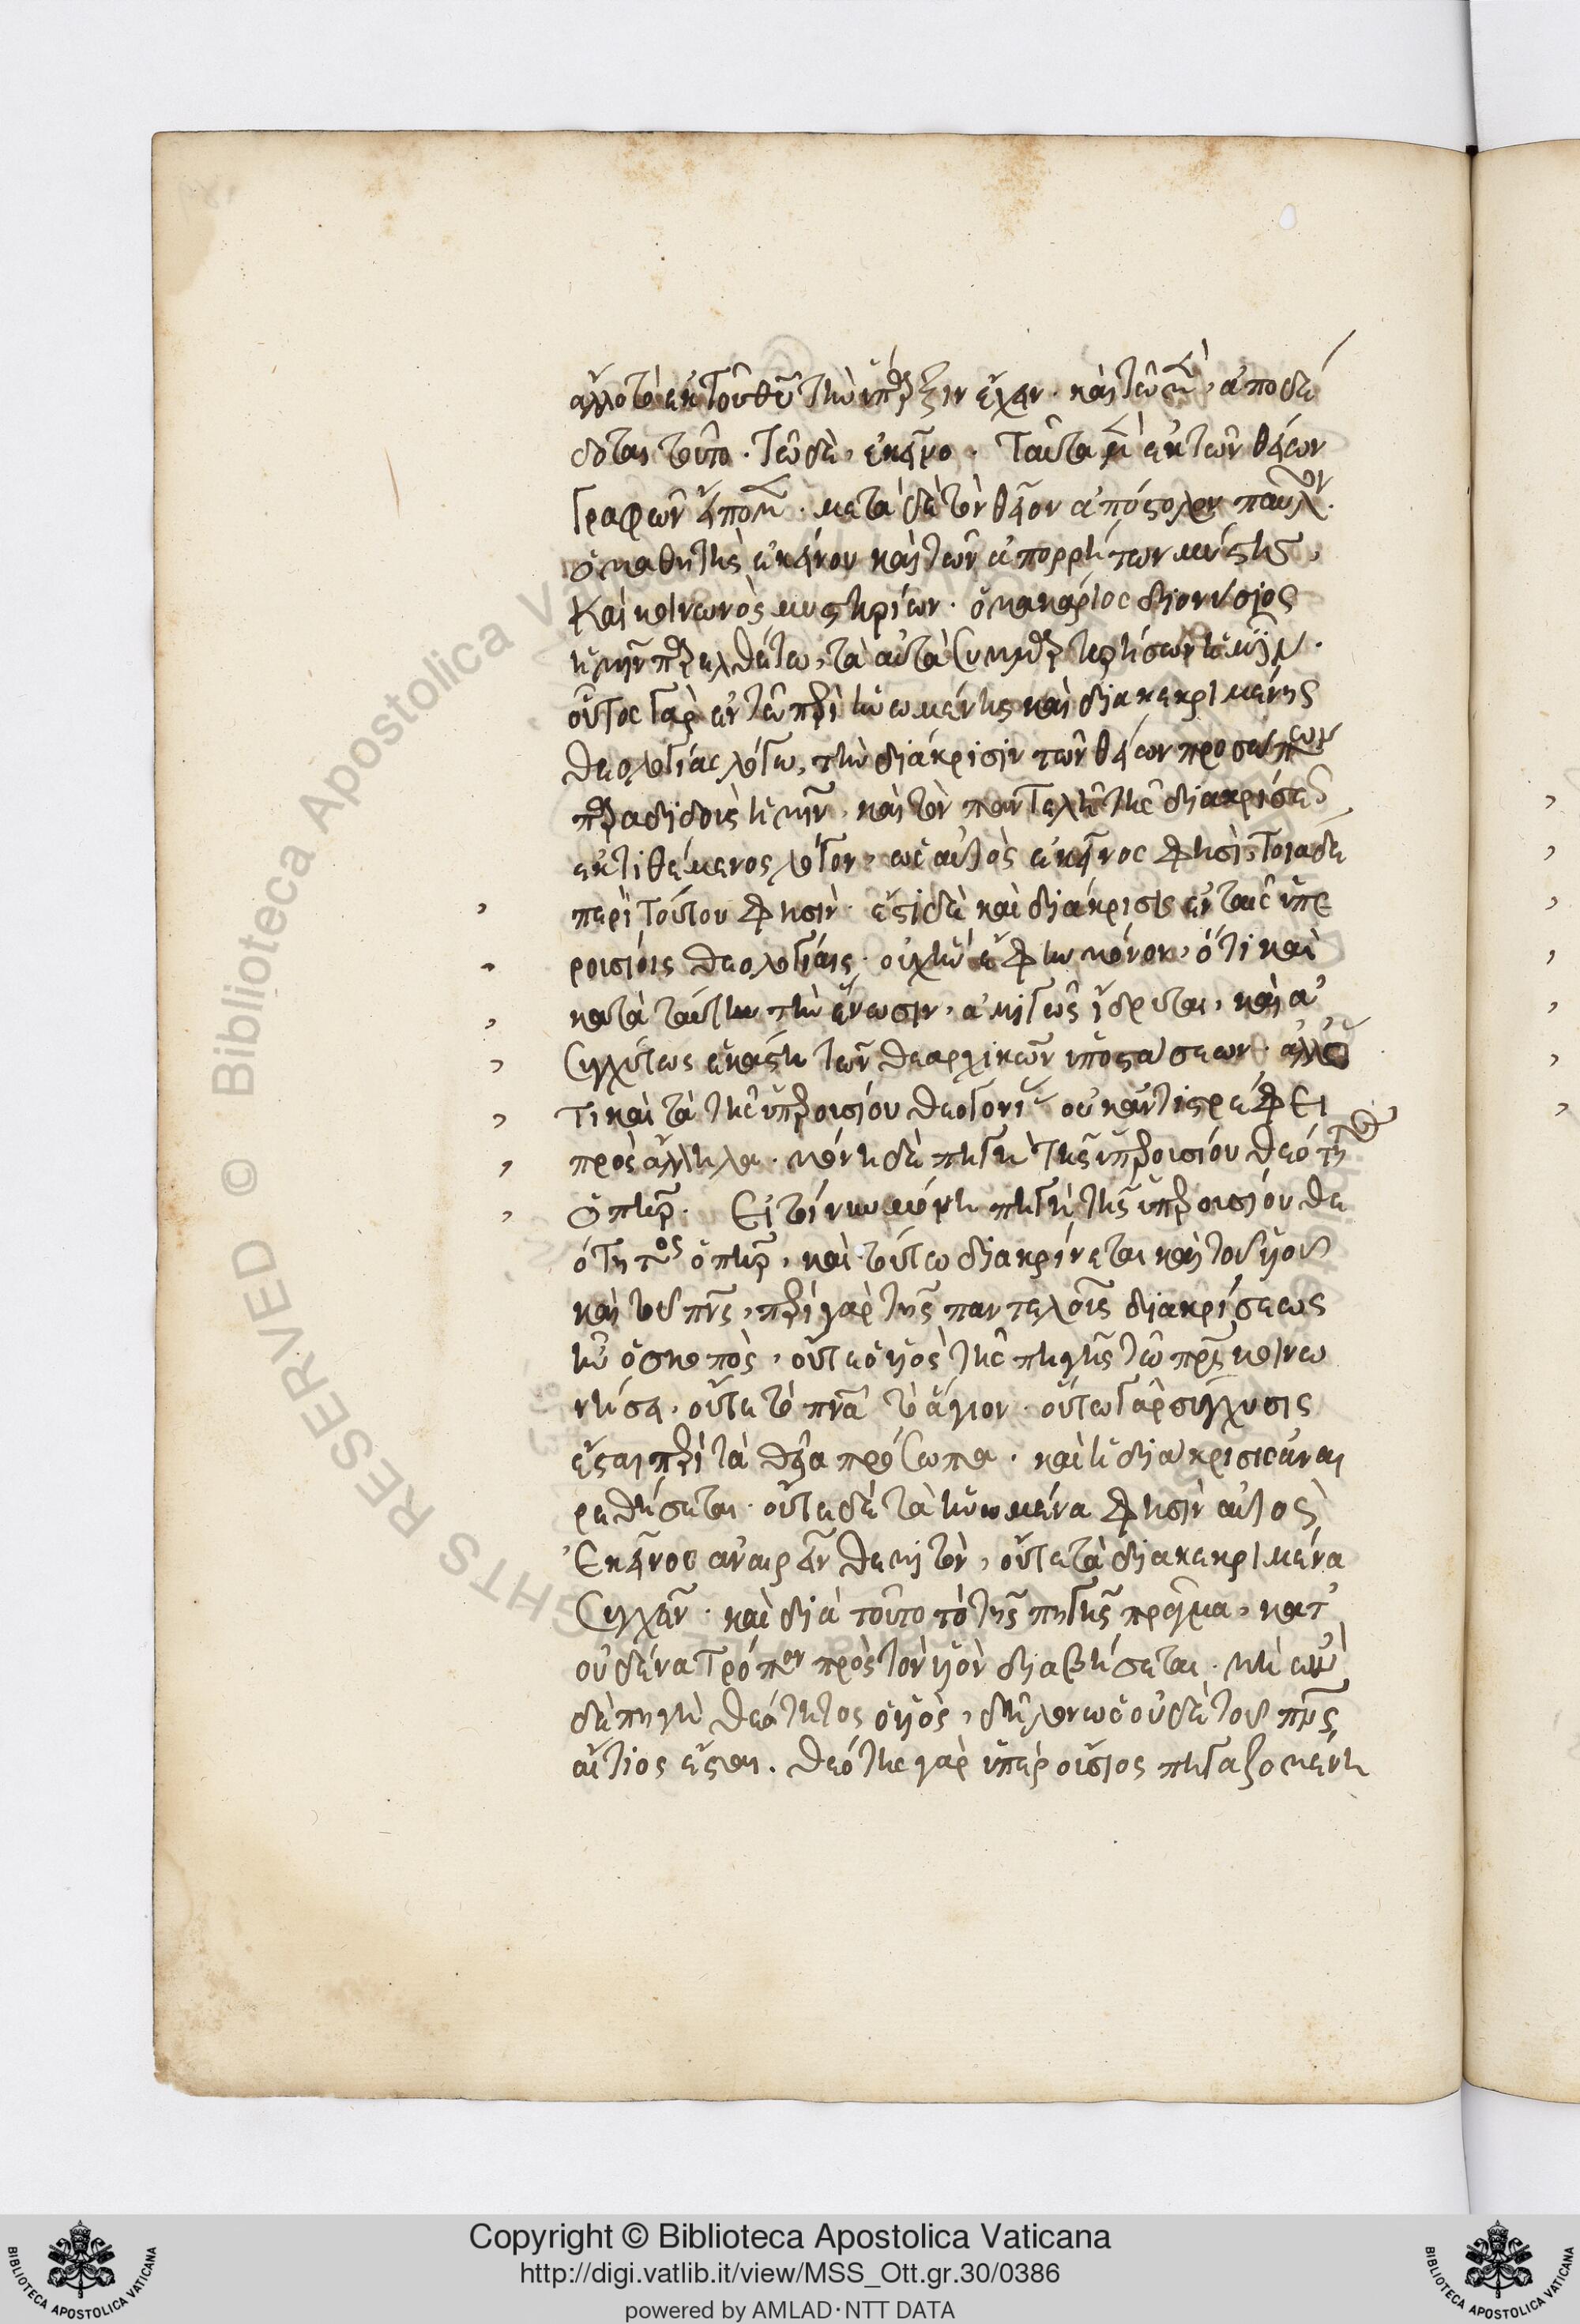 ἄλλο τὸ ἐκ τοῦ θυ τὴν ὕπαρξιν ἔχειν· καὶ τῶ μὲν, ἀποδέ
δοται τοῦτο· τῶ δὲ, ἐκεῖνο. Ταῦτα μὲν ἐκ τῶν θείων
γραφῶν εἴπομεν· μετὰ δὲ τὸν θεῖον ἀπόστολον παῦλον.
ὁ μαθητὴς ἐκείνου καὶ τῶν ἀπορρήτων μύστης,
καὶ κοινωνὸς μυστηρίων· ὁ μακάριος διονύσιος
ἡμῖν παρελθέτω, τὰ αὐτὰ συμμαρτυρήσων ἡμῖν.
οὗτος γὰρ ἐν τῶ περὶ ἡνωμένης καὶ διακεκριμένης
θεολογίας λόγω, τὴν διάκρισιν τῶν θείων προσώπων
παραδιδοὺς ἡμῖν, καὶ τὸν παντελῆ τῆς διακρίσεως
ἐκτιθέμενος λόγον, ὡς αὐτὸς ἐκεῖνος φησὶ, τοιάδε
περὶ τούτου φησὶν· ἔστι δὲ καὶ διάκρισις ἐν ταῖς ὑπε
ρουσίοις θεολογίαις· οὐχ ἣν ἔφην μόνον, ὅτι καὶ
κατὰ ταύτην τὴν ἕνωσιν, ἀμιγῶς ἵδρυται, καὶ ἀ
συγχύτως ἑκάστη τῶν θεαρχικῶν ὑποστάσεων· ἀλλ' ὅ
τι καὶ τὰ τῆς ὑπερουσίου θεογονίας οὐκ ἀντιστρέφει
πρὸς ἄλληλα· μόνη δὲ πηγὴ τῆς ὑπερουσίου θεότητος
ὁ πηρ. Εἰ τοίνυν μόνη πηγὴ τῆς ὑπερουσίου θε
ότητος ὁ πηρ, καὶ τούτω διακρίνεται καὶ τοῦ υἱοῦ
καὶ τοῦ πνς, περὶ γὰρ τῆς παντελοῦς διακρίσεως
ἦν ὁ σκοπὸς, οὔτε ὁ υἱὸς τῆς πηγῆς τῶ πρς κοινω
νήσει, οὔτε τὸ πνα τὸ ἅγιον· οὕτω γὰρ σύγχυσις
ἔσται περὶ τὰ θεῖα πρόσωπα· καὶ ἡ διάκρισις ἀναι
ρεθήσεται· οὔτε δὲ τὰ ἡνωμένα φησὶν αὐτὸς
ἐκεῖνος ἀναιρεῖν θεμιτὸν, οὔτε τὰ διακεκριμένα
συγχεῖν· καὶ διὰ τοῦτο τὸ τῆς πηγῆς πρᾶγμα, κατ'
οὐδένα τρόπον πρὸς τὸν υἱὸν διαβήσεται· μὴ ὢν
δὲ πηγὴ θεότητος ὁ υἱὸς, δῆλον ὡς οὐδὲ τοῦ πνς
αἴτιος ἔσται. θεότης γὰρ ὑπερούσιος πηγαζομένη
Copyright © Biblioteca Apostolica Vaticana
http://digi.vatlib.it/view/MSS_Ott.gr.30/0386
powered by AMLAD·NTT DATA